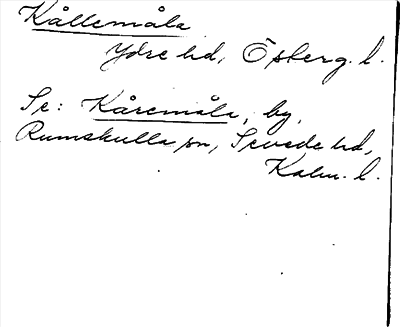 Kållemåla
Ydre hd, Östberg. l.
Se: Kåremåla, by,
Rumskulla sn, Sevede hd,
Kalm. l.